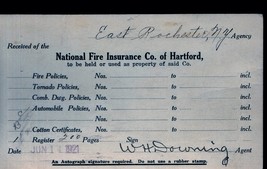 East Rochester, N.Y. Agency
Received of the
National Fire Insurance Co. of Hartford,
to be held or used as property of said Co.
Fire Policies, Nos. to incl.
Tornado Policies, Nos. to incl.
Comb. Dwg. Policies, Nos. to incl.
Automobile Policies, Nos. to incl.
Nos. to incl.
Cotton Certificates, Nos. to incl.
1 Register Pages Sign
Date JUN 1921 W H Downing Agent
An Autograph signature required. Do not use a rubber stamp.